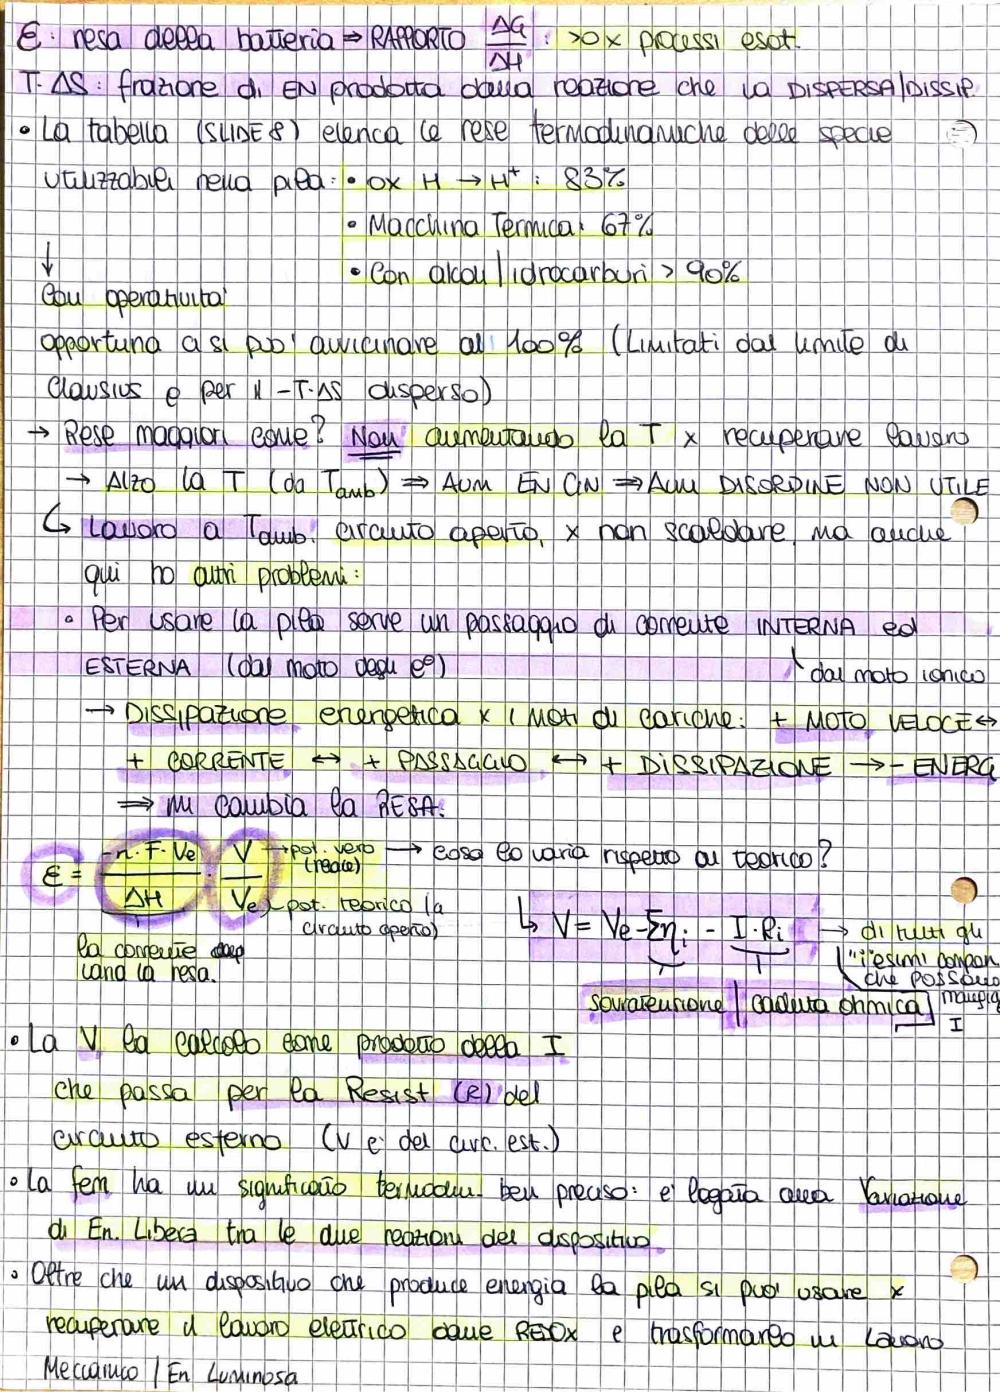 ε: resa della batteria ⇒ RAPPORTO ΔG/ΔH : >0 x processi esot.
T·ΔS: frazione di EN prodotta dalla reazione che va DISPERSA/DISSIP.
• La tabella (SLIDE 8) elenca le rese termodinamiche delle specie
utilizzabili nella pila: • ox H → H⁺ : 83%
• Macchina Termica: 67%
• Con alcoli/idrocarburi > 90%
↓
Con operatività
opportuna a si può avvicinare al 100% (Limitati dal limite di
Clausius e per il -T·ΔS disperso)
→ Rese maggiori come? Non aumentando la T x recuperare lavoro
→ Alzo la T (da Tamb) ⇒ AUM EN CIN ⇒ AUM DISORDINE NON UTILE
↳ Lavoro a Tamb. circuito aperto, x non scaldare, ma anche
qui ho altri problemi:
• Per usare la pila serve un passaggio di corrente INTERNA ed
ESTERNA (dal moto degli e⁰) dal moto ionico
→ Dissipazione energetica x i moti di cariche: + MOTO VELOCE ↔
+ CORRENTE ↔ + PASSAGGIO ↔ + DISSIPAZIONE → - ENERG
⇒ mi cambia la RESA:
ε = -n·F·Ve/ΔH · V/Ve → pot. vero (reale) → cosa lo varia rispetto al teorico?
pot. teorico (a circuito aperto)
↳ V = Ve - Σηi - I·Ri → di tutti gli
"i"esimi compon
che possono
la corrente
cand la resa.
sovratensione | caduta ohmica
I
• La V la calcolo come prodotto della I
che passa per la Resist (R) del
circuito esterno (V è del circ. est.)
• La fem ha un significato termodin. ben preciso: è legata alla Variazione
di En. Libera tra le due reazioni del dispositivo
• Oltre che un dispositivo che produce energia la pila si può usare x
recuperare il lavoro elettrico dalle REDOX e trasformarlo in Lavoro
Meccanico / En Luminosa